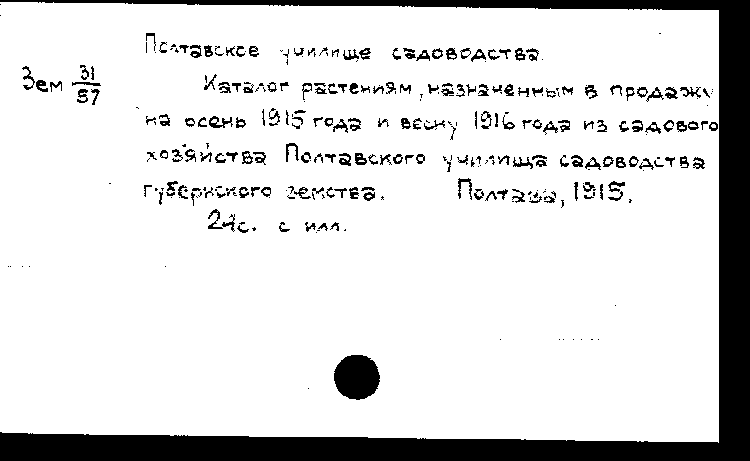 Полтавское училище садоводства.
Зем 31/57
Каталог растениям, назначенным в продажу
на осень 1915 года и весну 1916 года из садового
хозяйства Полтавского училища садоводства
губернского земства. Полтава, 1915.
24с. с илл.